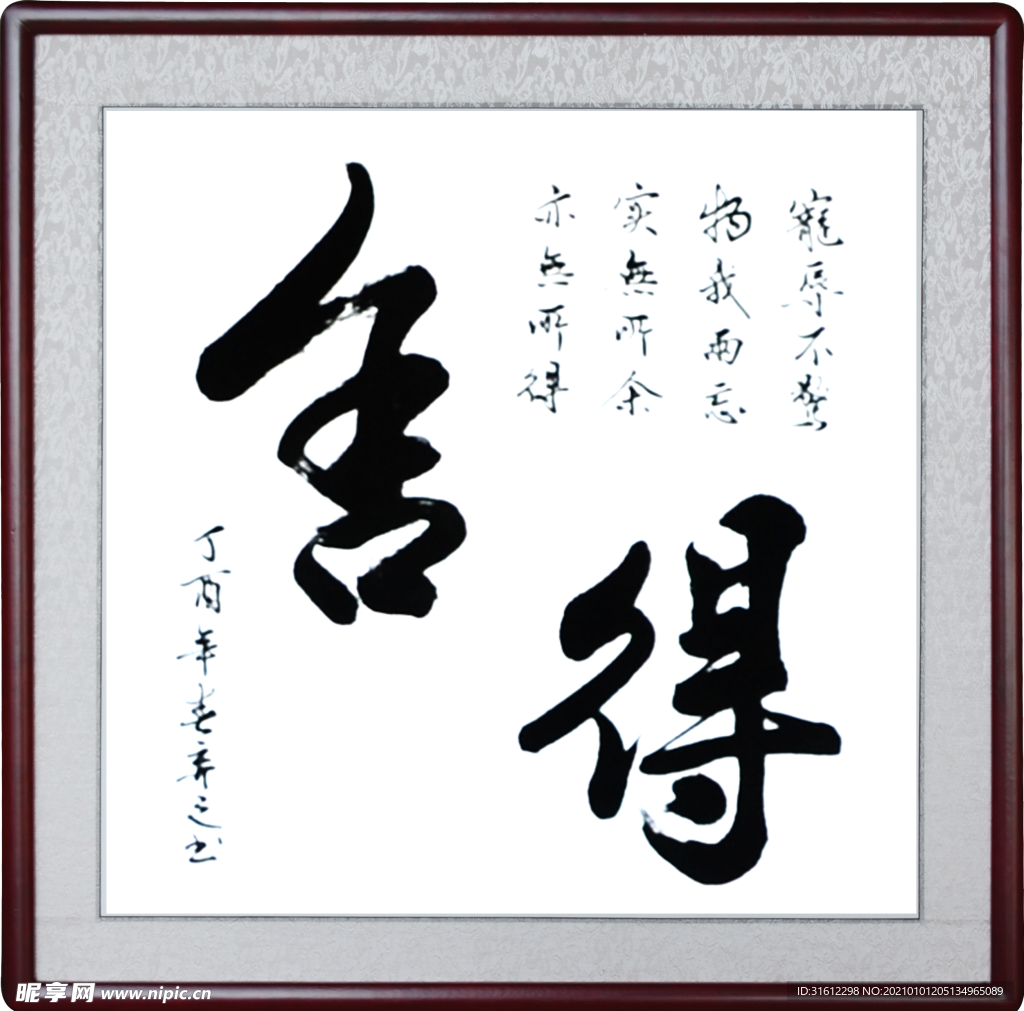 舍得
寵辱不驚
物我兩忘
实無所余
亦無所得
丁酉年春之书
昵享网 www.nipic.cn
ID:31612298 NO:20210101205134965089